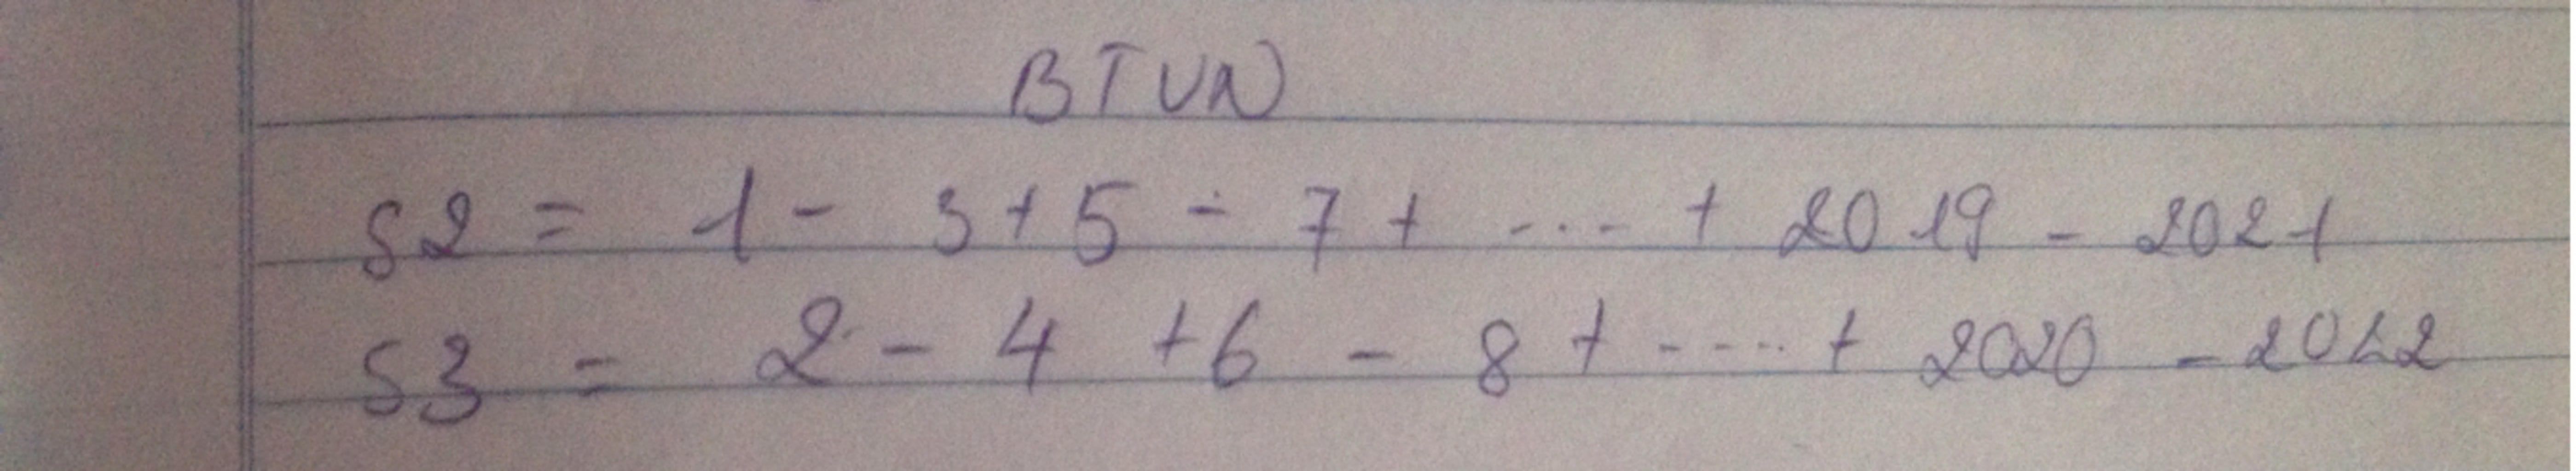 BTVN
S2 = 1 - 3 + 5 - 7 + .... + 2019 - 2021
S3 = 2 - 4 + 6 - 8 + ..... + 2020 - 2022